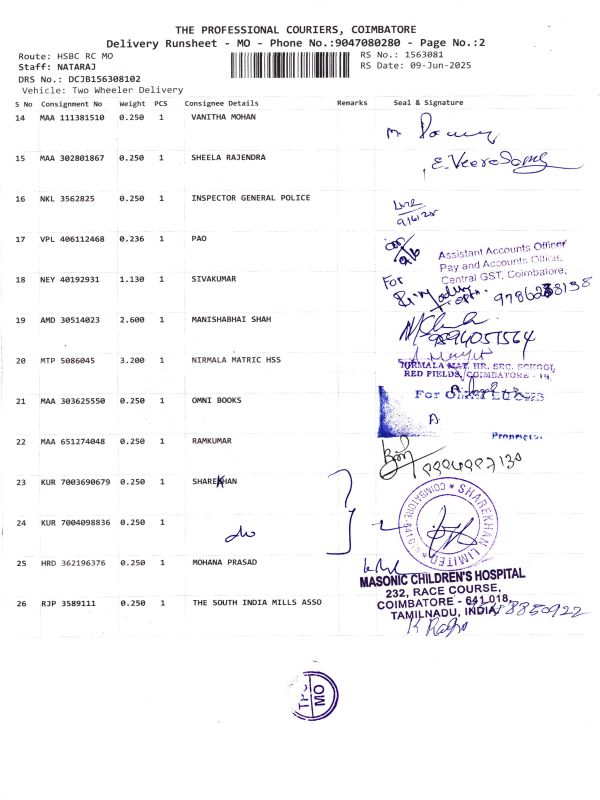 THE PROFESSIONAL COURIERS, COIMBATORE
Delivery Runsheet - MO - Phone No.:9047080280 - Page No.:2
Route: HSBC RC MO RS No.: 1563081
Staff: NATARAJ RS Date: 09-Jun-2025
DRS No.: DCJB156308102
Vehicle: Two Wheeler Delivery
S No Consignment No Weight PCS Consignee Details Remarks Seal & Signature
14 MAA 111381510 0.250 1 VANITHA MOHAN
15 MAA 302801867 0.250 1 SHEELA RAJENDRA
16 NKL 3562825 0.250 1 INSPECTOR GENERAL POLICE
9/6/25
17 VPL 406112468 0.236 1 PAO
9/6
Assistant Accounts Officer
Pay and Accounts Office,
Central GST, Coimbatore,
18 NEY 40192931 1.130 1 SIVAKUMAR
For
19 AMD 30514023 2.600 1 MANISHABHAI SHAH
9894051564
20 MTP 5086045 3.200 1 NIRMALA MATRIC HSS
NIRMALA MAT. HR. SEC. SCHOOL,
RED FIELDS, COIMBATORE - 18,
21 MAA 303625550 0.250 1 OMNI BOOKS
For
Proprietor.
22 MAA 651274048 0.250 1 RAMKUMAR
23 KUR 7003690679 0.250 1 SHAREKHAN
24 KUR 7004098836 0.250 1
do
SHAREKHAN LIMITED
25 HRD 362196376 0.250 1 MOHANA PRASAD
MASONIC CHILDREN'S HOSPITAL
232, RACE COURSE,
COIMBATORE - 641 018,
TAMILNADU, INDIA
26 RJP 3589111 0.250 1 THE SOUTH INDIA MILLS ASSO
TPC
MO